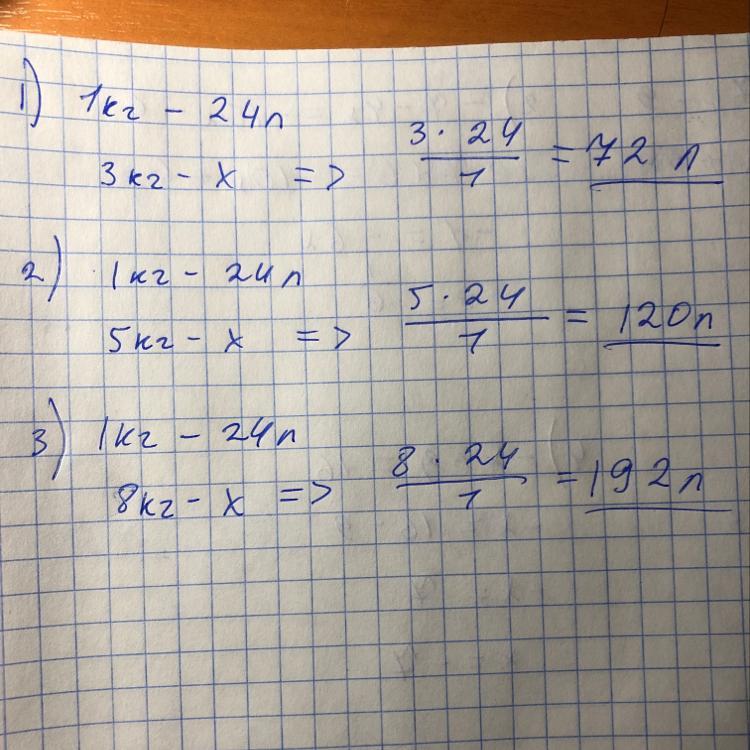 1) 1кг - 24л
3кг - x => 3 · 24 / 1 = 72 л
2) 1кг - 24л
5кг - x => 5 · 24 / 1 = 120л
3) 1кг - 24л
8кг - x => 8 · 24 / 1 = 192л